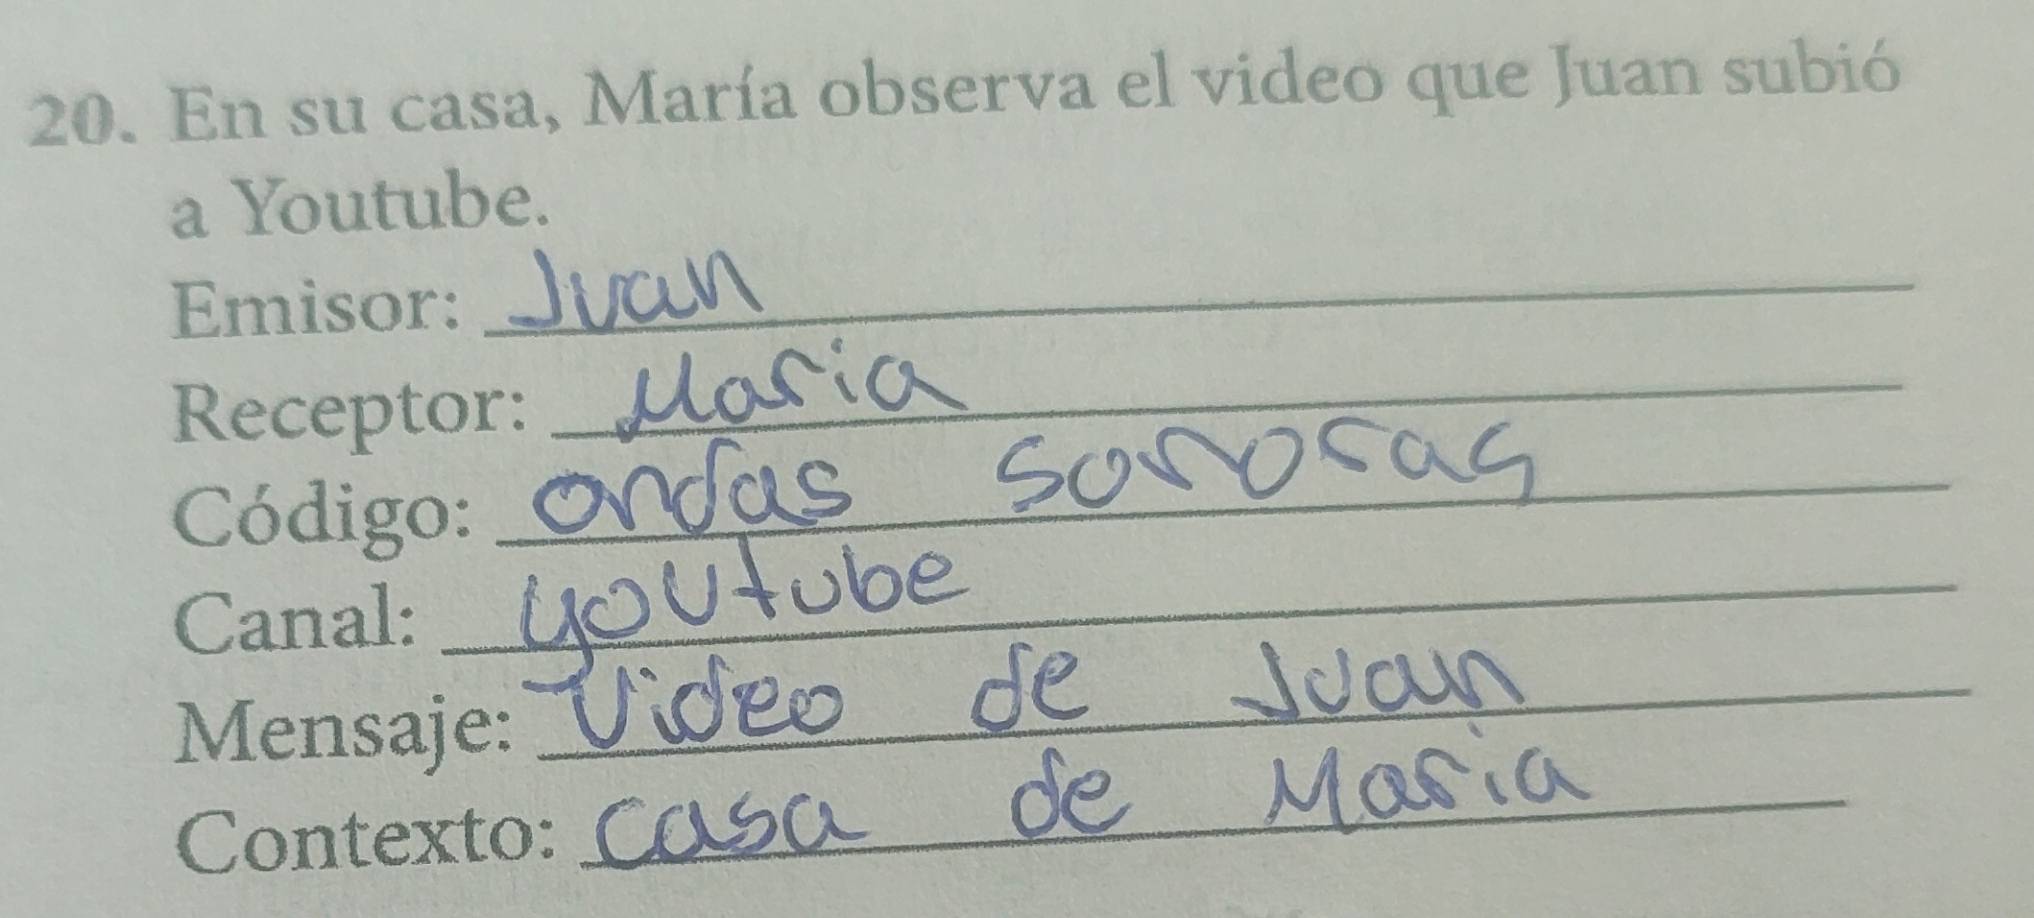 20. En su casa, María observa el video que Juan subió
a Youtube.
Emisor: Juan
Receptor: Maria
Código: ondas sonoras
Canal: youtube
Mensaje: Video de Juan
Contexto: casa de Maria